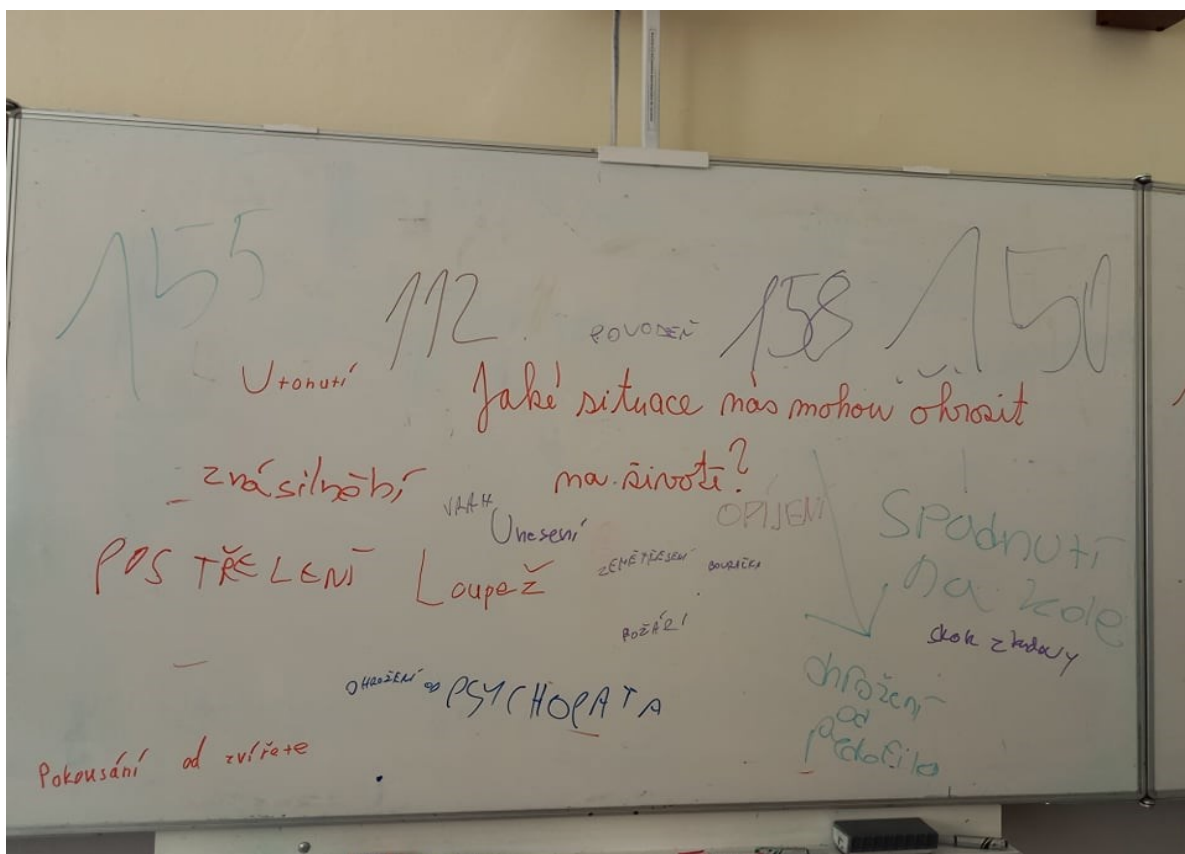 155
112
158
150
POVODEŇ
Utonutí
Jaké situace nás mohou ohrozit
na životě?
znásilněbí
VRAH
Unesení
OPÍJENÍ
Spadnutí
na kole
POSTŘELENÍ
Loupež
ZEMĚTŘESENÍ
BOURAČKA
POŽÁR
OHROŽENÍ OD PSYCHOPATA
ohrožení
od
pedofila
Pokousání od zvířete